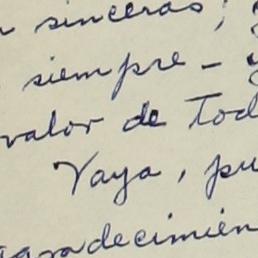 sinceras;
siempre -
valor de Tod
Vaya, pu
agradecimien